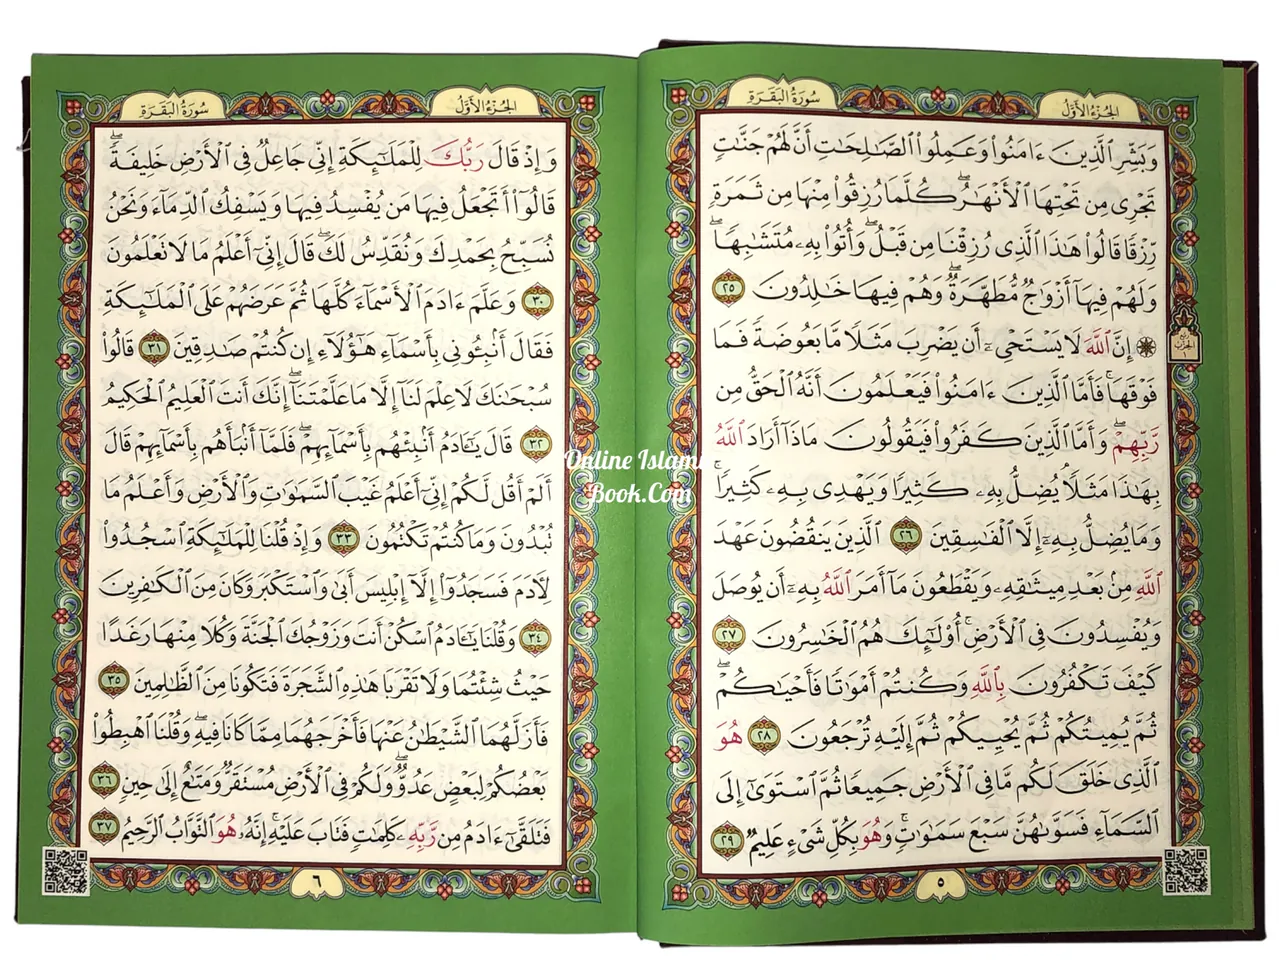 سُورَةُ البَقَرَةِ
الجُزْءُ الأَوَّلُ
وَبَشِّرِ ٱلَّذِينَ ءَامَنُوا۟ وَعَمِلُوا۟ ٱلصَّٰلِحَٰتِ أَنَّ لَهُمْ جَنَّٰتٍ
تَجْرِى مِن تَحْتِهَا ٱلْأَنْهَٰرُ ۖ كُلَّمَا رُزِقُوا۟ مِنْهَا مِن ثَمَرَةٍ
رِّزْقًا قَالُوا۟ هَٰذَا ٱلَّذِى رُزِقْنَا مِن قَبْلُ ۖ وَأُتُوا۟ بِهِۦ مُتَشَٰبِهًا ۖ
وَلَهُمْ فِيهَآ أَزْوَٰجٌ مُّطَهَّرَةٌ ۖ وَهُمْ فِيهَا خَٰلِدُونَ ٢٥
۞ إِنَّ ٱللَّهَ لَا يَسْتَحْىِۦٓ أَن يَضْرِبَ مَثَلًا مَّا بَعُوضَةً فَمَا
فَوْقَهَا ۚ فَأَمَّا ٱلَّذِينَ ءَامَنُوا۟ فَيَعْلَمُونَ أَنَّهُ ٱلْحَقُّ مِن
رَّبِّهِمْ ۖ وَأَمَّا ٱلَّذِينَ كَفَرُوا۟ فَيَقُولُونَ مَاذَآ أَرَادَ ٱللَّهُ
بِهَٰذَا مَثَلًا ۘ يُضِلُّ بِهِۦ كَثِيرًا وَيَهْدِى بِهِۦ كَثِيرًا ۚ
وَمَا يُضِلُّ بِهِۦٓ إِلَّا ٱلْفَٰسِقِينَ ٢٦ ٱلَّذِينَ يَنقُضُونَ عَهْدَ
ٱللَّهِ مِنۢ بَعْدِ مِيثَٰقِهِۦ وَيَقْطَعُونَ مَآ أَمَرَ ٱللَّهُ بِهِۦٓ أَن يُوصَلَ
وَيُفْسِدُونَ فِى ٱلْأَرْضِ ۚ أُو۟لَٰٓئِكَ هُمُ ٱلْخَٰسِرُونَ ٢٧
كَيْفَ تَكْفُرُونَ بِٱللَّهِ وَكُنتُمْ أَمْوَٰتًا فَأَحْيَٰكُمْ ۖ
ثُمَّ يُمِيتُكُمْ ثُمَّ يُحْيِيكُمْ ثُمَّ إِلَيْهِ تُرْجَعُونَ ٢٨ هُوَ
ٱلَّذِى خَلَقَ لَكُم مَّا فِى ٱلْأَرْضِ جَمِيعًا ثُمَّ ٱسْتَوَىٰٓ إِلَى
ٱلسَّمَآءِ فَسَوَّىٰهُنَّ سَبْعَ سَمَٰوَٰتٍ ۚ وَهُوَ بِكُلِّ شَىْءٍ عَلِيمٌ ٢٩
٥
سُورَةُ البَقَرَةِ
الجُزْءُ الأَوَّلُ
وَإِذْ قَالَ رَبُّكَ لِلْمَلَٰٓئِكَةِ إِنِّى جَاعِلٌ فِى ٱلْأَرْضِ خَلِيفَةً ۖ
قَالُوٓا۟ أَتَجْعَلُ فِيهَا مَن يُفْسِدُ فِيهَا وَيَسْفِكُ ٱلدِّمَآءَ وَنَحْنُ
نُسَبِّحُ بِحَمْدِكَ وَنُقَدِّسُ لَكَ ۖ قَالَ إِنِّىٓ أَعْلَمُ مَا لَا تَعْلَمُونَ
٣٠ وَعَلَّمَ ءَادَمَ ٱلْأَسْمَآءَ كُلَّهَا ثُمَّ عَرَضَهُمْ عَلَى ٱلْمَلَٰٓئِكَةِ
فَقَالَ أَنۢبِـُٔونِى بِأَسْمَآءِ هَٰٓؤُلَآءِ إِن كُنتُمْ صَٰدِقِينَ ٣١ قَالُوا۟
سُبْحَٰنَكَ لَا عِلْمَ لَنَآ إِلَّا مَا عَلَّمْتَنَآ ۖ إِنَّكَ أَنتَ ٱلْعَلِيمُ ٱلْحَكِيمُ
٣٢ قَالَ يَٰٓـَٔادَمُ أَنۢبِئْهُم بِأَسْمَآئِهِمْ ۖ فَلَمَّآ أَنۢبَأَهُم بِأَسْمَآئِهِمْ قَالَ
أَلَمْ أَقُل لَّكُمْ إِنِّىٓ أَعْلَمُ غَيْبَ ٱلسَّمَٰوَٰتِ وَٱلْأَرْضِ وَأَعْلَمُ مَا
تُبْدُونَ وَمَا كُنتُمْ تَكْتُمُونَ ٣٣ وَإِذْ قُلْنَا لِلْمَلَٰٓئِكَةِ ٱسْجُدُوا۟
لِءَادَمَ فَسَجَدُوٓا۟ إِلَّآ إِبْلِيسَ أَبَىٰ وَٱسْتَكْبَرَ وَكَانَ مِنَ ٱلْكَٰفِرِينَ
٣٤ وَقُلْنَا يَٰٓـَٔادَمُ ٱسْكُنْ أَنتَ وَزَوْجُكَ ٱلْجَنَّةَ وَكُلَا مِنْهَا رَغَدًا
حَيْثُ شِئْتُمَا وَلَا تَقْرَبَا هَٰذِهِ ٱلشَّجَرَةَ فَتَكُونَا مِنَ ٱلظَّٰلِمِينَ ٣٥
فَأَزَلَّهُمَا ٱلشَّيْطَٰنُ عَنْهَا فَأَخْرَجَهُمَا مِمَّا كَانَا فِيهِ ۖ وَقُلْنَا ٱهْبِطُوا۟
بَعْضُكُمْ لِبَعْضٍ عَدُوٌّ ۖ وَلَكُمْ فِى ٱلْأَرْضِ مُسْتَقَرٌّ وَمَتَٰعٌ إِلَىٰ حِينٍ ٣٦
فَتَلَقَّىٰٓ ءَادَمُ مِن رَّبِّهِۦ كَلِمَٰتٍ فَتَابَ عَلَيْهِ ۚ إِنَّهُۥ هُوَ ٱلتَّوَّابُ ٱلرَّحِيمُ ٣٧
٦
Online Islamic
Book.Com